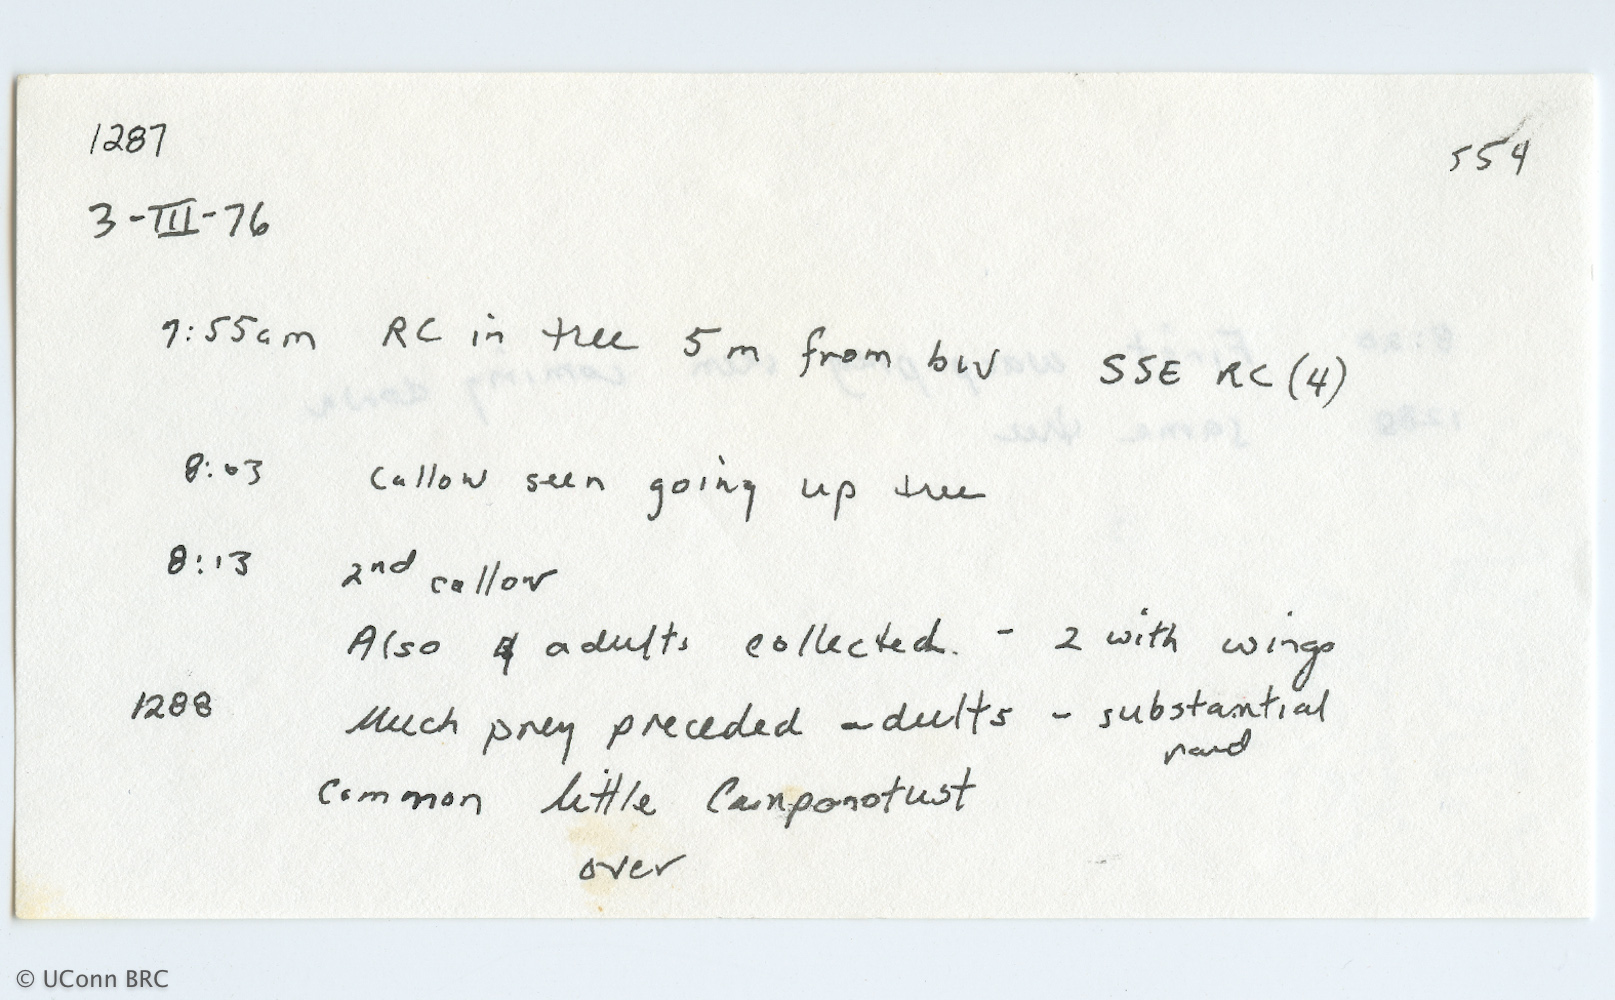 1287
554
3-III-76
7:55am RC in tree 5m from biv SSE RC (4)
8:03 callow seen going up tree
8:13 2nd callow
Also 4 adults collected. - 2 with wings
1288 Much prey preceded adults - substantial
raid
common little Camponotus
over
© UConn BRC